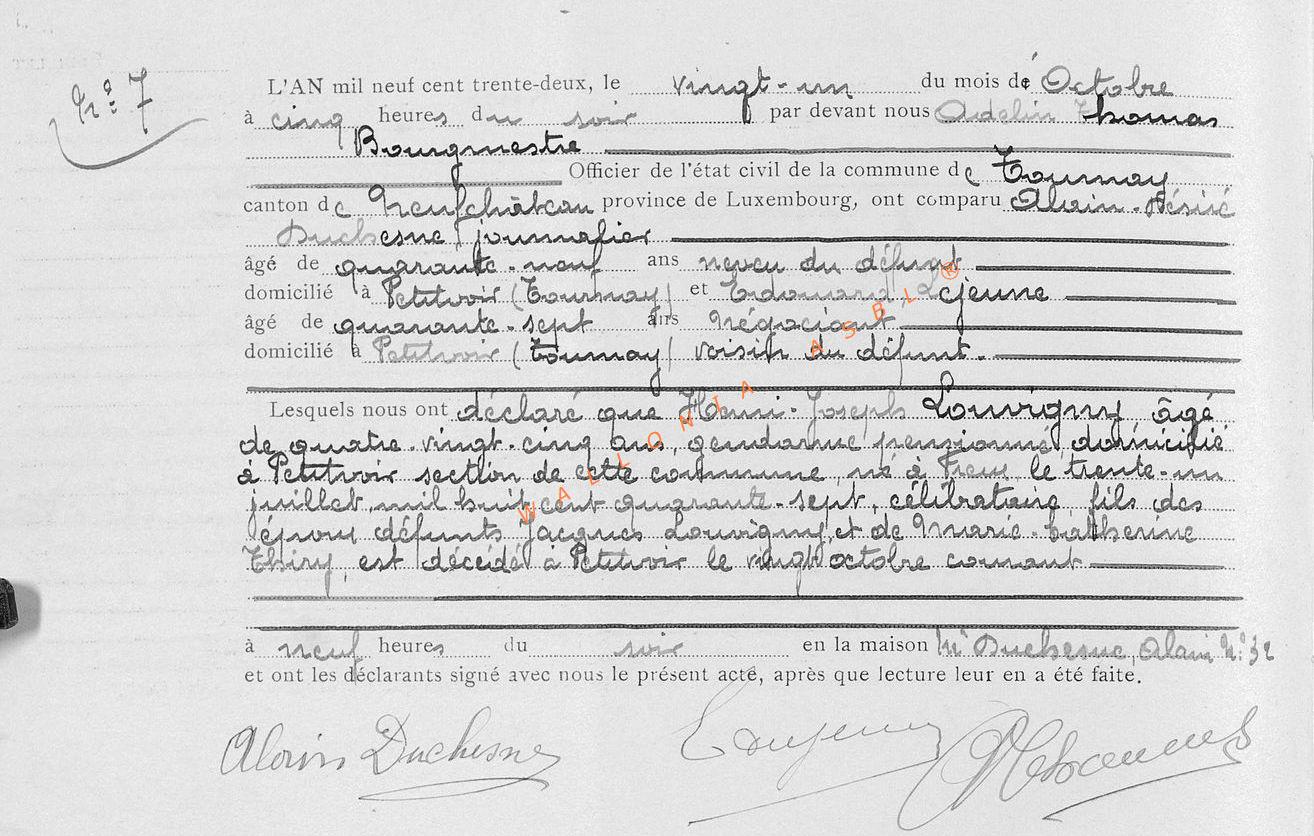 Nº 7
L'AN mil neuf cent trente-deux, le vingt-un du mois de Octobre
à cinq heures du soir par devant nous Adelin Thomas
Bourgmestre
Officier de l'état civil de la commune de Tournay
canton de Neufchâteau province de Luxembourg, ont comparu Alvain-Désiré
Duchesne, journalier
âgé de quarante-neuf ans neveu du défunt
domicilié à Petitvoir (Tournay) et Edouard Lejeune
âgé de quarante-sept ans négociant
domicilié à Petitvoir (Tournay) voisin du défunt.
Lesquels nous ont déclaré que Henri-Joseph Louvigny âgé
de quatre-vingt-cinq ans, gendarme pensionné, domicilié
à Petitvoir section de cette commune, né à Freux le trente-un
juillet mil huit cent quarante-sept, célibataire, fils des
époux défunts Jacques Louvigny et de Marie-Catherine
Thiry, est décédé à Petitvoir le vingt octobre courant
à neuf heures du soir en la maison Duchesne, Alvain Nº 32
et ont les déclarants signé avec nous le présent acte, après que lecture leur en a été faite.
Duchesne
WALLONIA ASBL ®